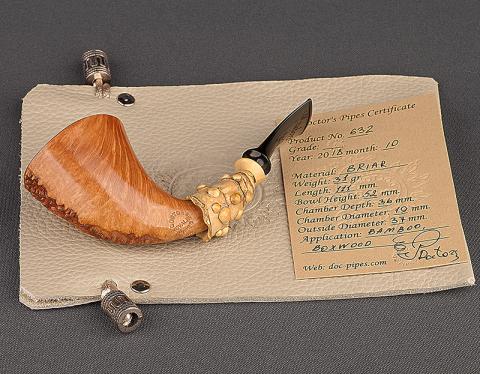 Doctor's Pipes Certificate
Product No. 632
Grade:
Year: 2018 month: 10
Material: BRIAR
Weight: 31 gr.
Length: 111 mm.
Bowl Height: 52 mm.
Chamber Depth: 36 mm.
Chamber Diameter: 19 mm.
Outside Diameter: 37 mm.
Application: BAMBOO,
BOXWOOD
Web: doc-pipes.com